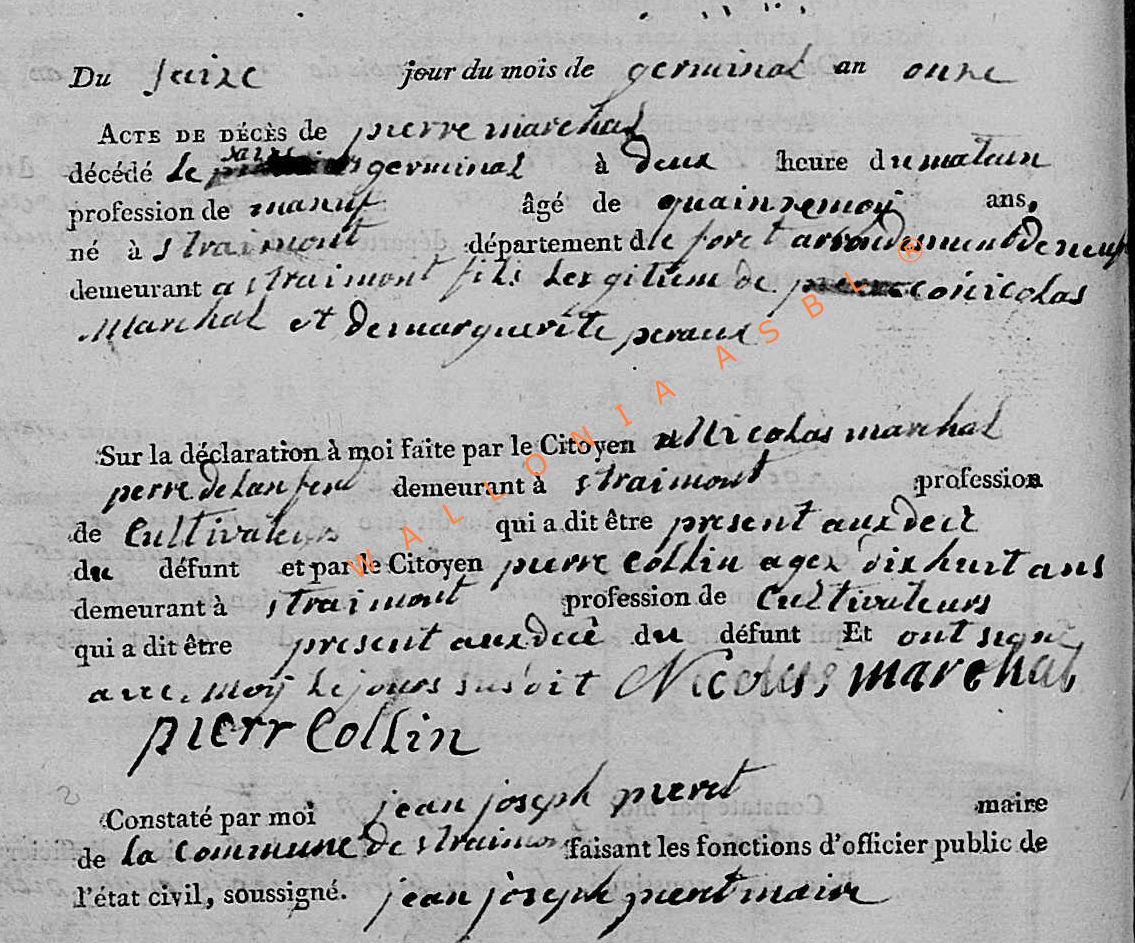 Du saize jour du mois de germinal an onze
ACTE DE DÉCÈS de pierre marchal
décédé le saize germinal à deux heure du matein
profession de âgé de quainze moy ans,
né à straimont département de foret arrondisement de neuf
demeurant a straimont fils de nicolas
Marchal et de marguerite peraux
Sur la déclaration à moi faite par le Citoyen Nicolas marchal
perre de lanfend demeurant à straimont profession
de Cultivateurs qui a dit être present aux decè
du défunt et par le Citoyen pierre Collin agez dix huit ans
demeurant à straimont profession de Cultivateurs
qui a dit être present aux decè du défunt Et ont signe
avec moy le jours susdit Nicolas marchal
pierr Collin
Constaté par moi jean joseph pieret maire
de la commune de straimon faisant les fonctions d'officier public de
l'état civil, soussigné. jean joseph pieret maire
WALLONIA ASBL ®